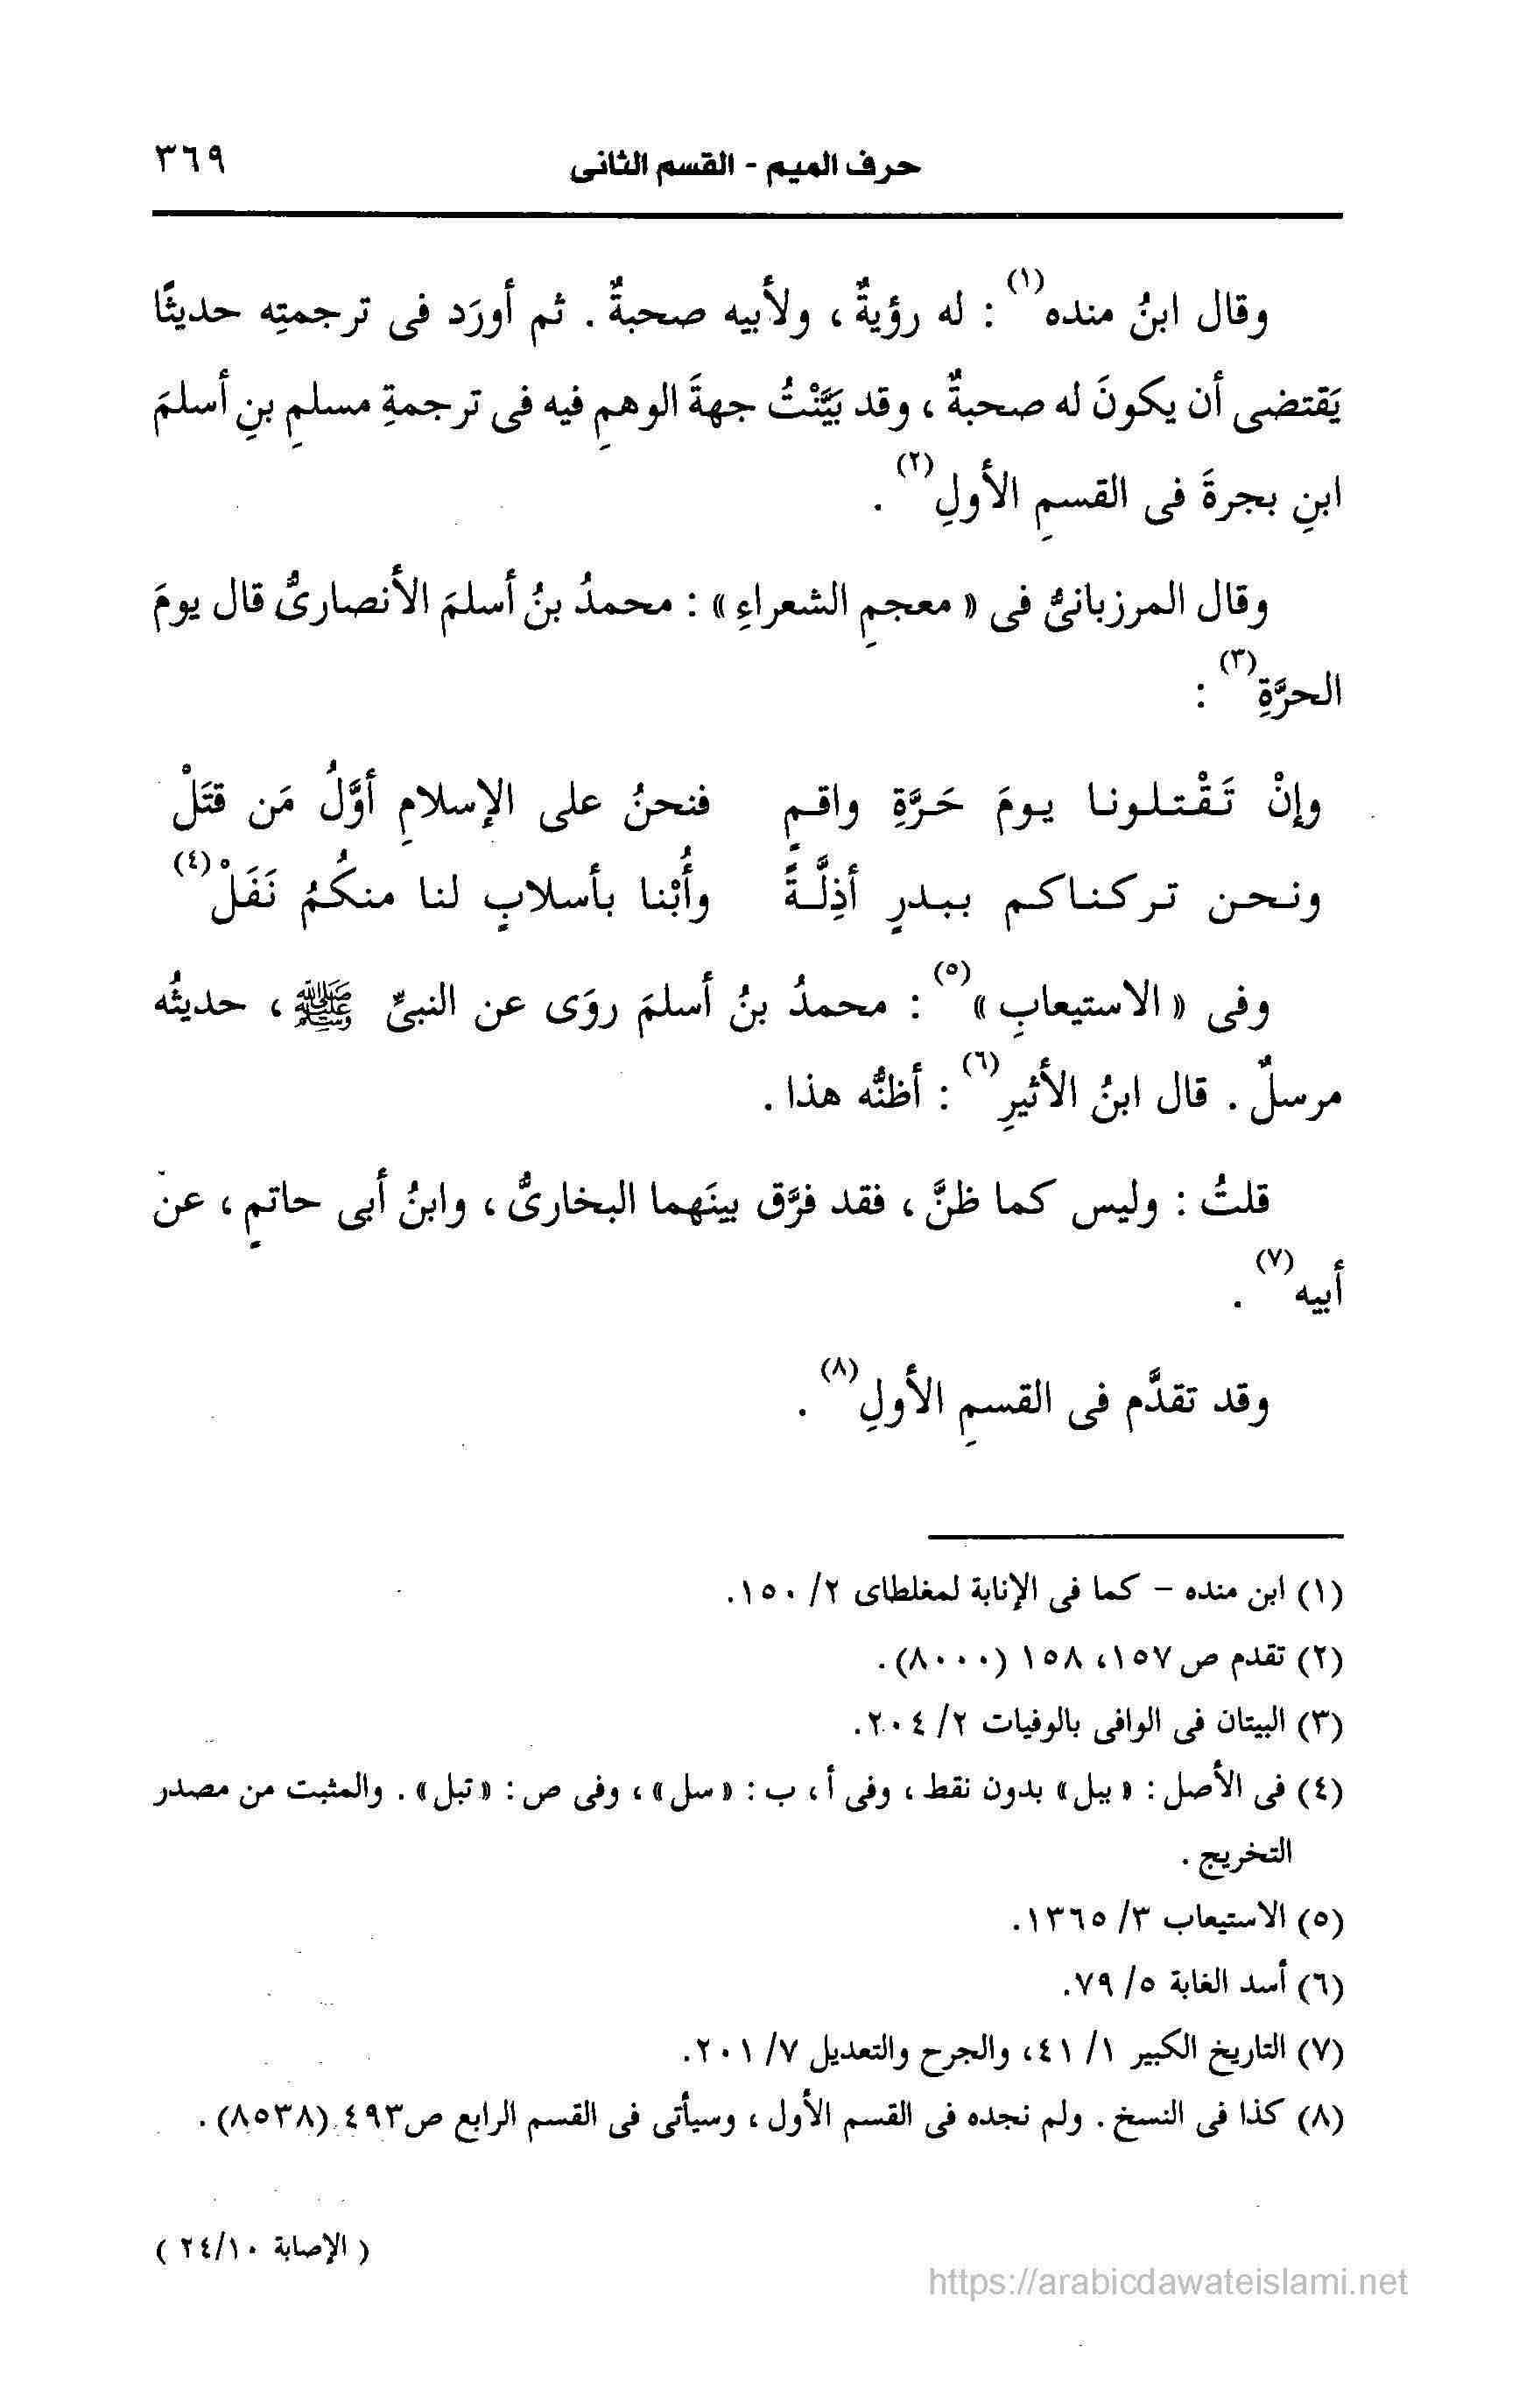 حرف الميم - القسم الثانى ٣٦٩
وقال ابنُ منده(١) : له رؤيةٌ ، ولأبيه صحبةٌ . ثم أورَد فى ترجمتِه حديثًا
يَقتضى أن يكونَ له صحبةٌ ، وقد بَيَّنْتُ جهةَ الوهمِ فيه فى ترجمةِ مسلمِ بنِ أسلمَ
ابنِ بجرةَ فى القسمِ الأولِ(٢) .
وقال المرزبانىُّ فى « معجمِ الشعراءِ » : محمدُ بنُ أسلمَ الأنصارىُّ قال يومَ
الحرَّةِ(٣) :
وإنْ تَقْتلونا يومَ حَرَّةِ واقمٍ فنحنُ على الإسلامِ أوَّلُ مَن قتَلْ
ونحن تركناكم ببدرٍ أذِلَّةً وأُبْنا بأسلابٍ لنا منكُمُ نَفَلْ(٤)
وفى « الاستيعابِ »(٥) : محمدُ بنُ أسلمَ روَى عن النبىِّ ﷺ ، حديثُه
مرسلٌ . قال ابنُ الأثيرِ(٦) : أظنُّه هذا .
قلتُ : وليس كما ظنَّ ، فقد فرَّق بينَهما البخارىُّ ، وابنُ أبى حاتمٍ ، عن
أبيه(٧) .
وقد تقدَّم فى القسمِ الأولِ(٨) .
(١) ابن منده - كما فى الإنابة لمغلطاى ٢/ ١٥٠.
(٢) تقدم ص ١٥٧، ١٥٨ (٨٠٠٠).
(٣) البيتان فى الوافى بالوفيات ٢/ ٢٠٤.
(٤) فى الأصل : « يبل » بدون نقط ، وفى أ ، ب : « سل » ، وفى ص : « تبل » . والمثبت من مصدر
التخريج .
(٥) الاستيعاب ٣/ ١٣٦٥.
(٦) أسد الغابة ٥/ ٧٩.
(٧) التاريخ الكبير ١/ ٤١، والجرح والتعديل ٧/ ٢٠١.
(٨) كذا فى النسخ . ولم نجده فى القسم الأول ، وسيأتى فى القسم الرابع ص٤٩٣ (٨٥٣٨) .
( الإصابة ٢٤/١٠ )
https://arabicdawateislami.net